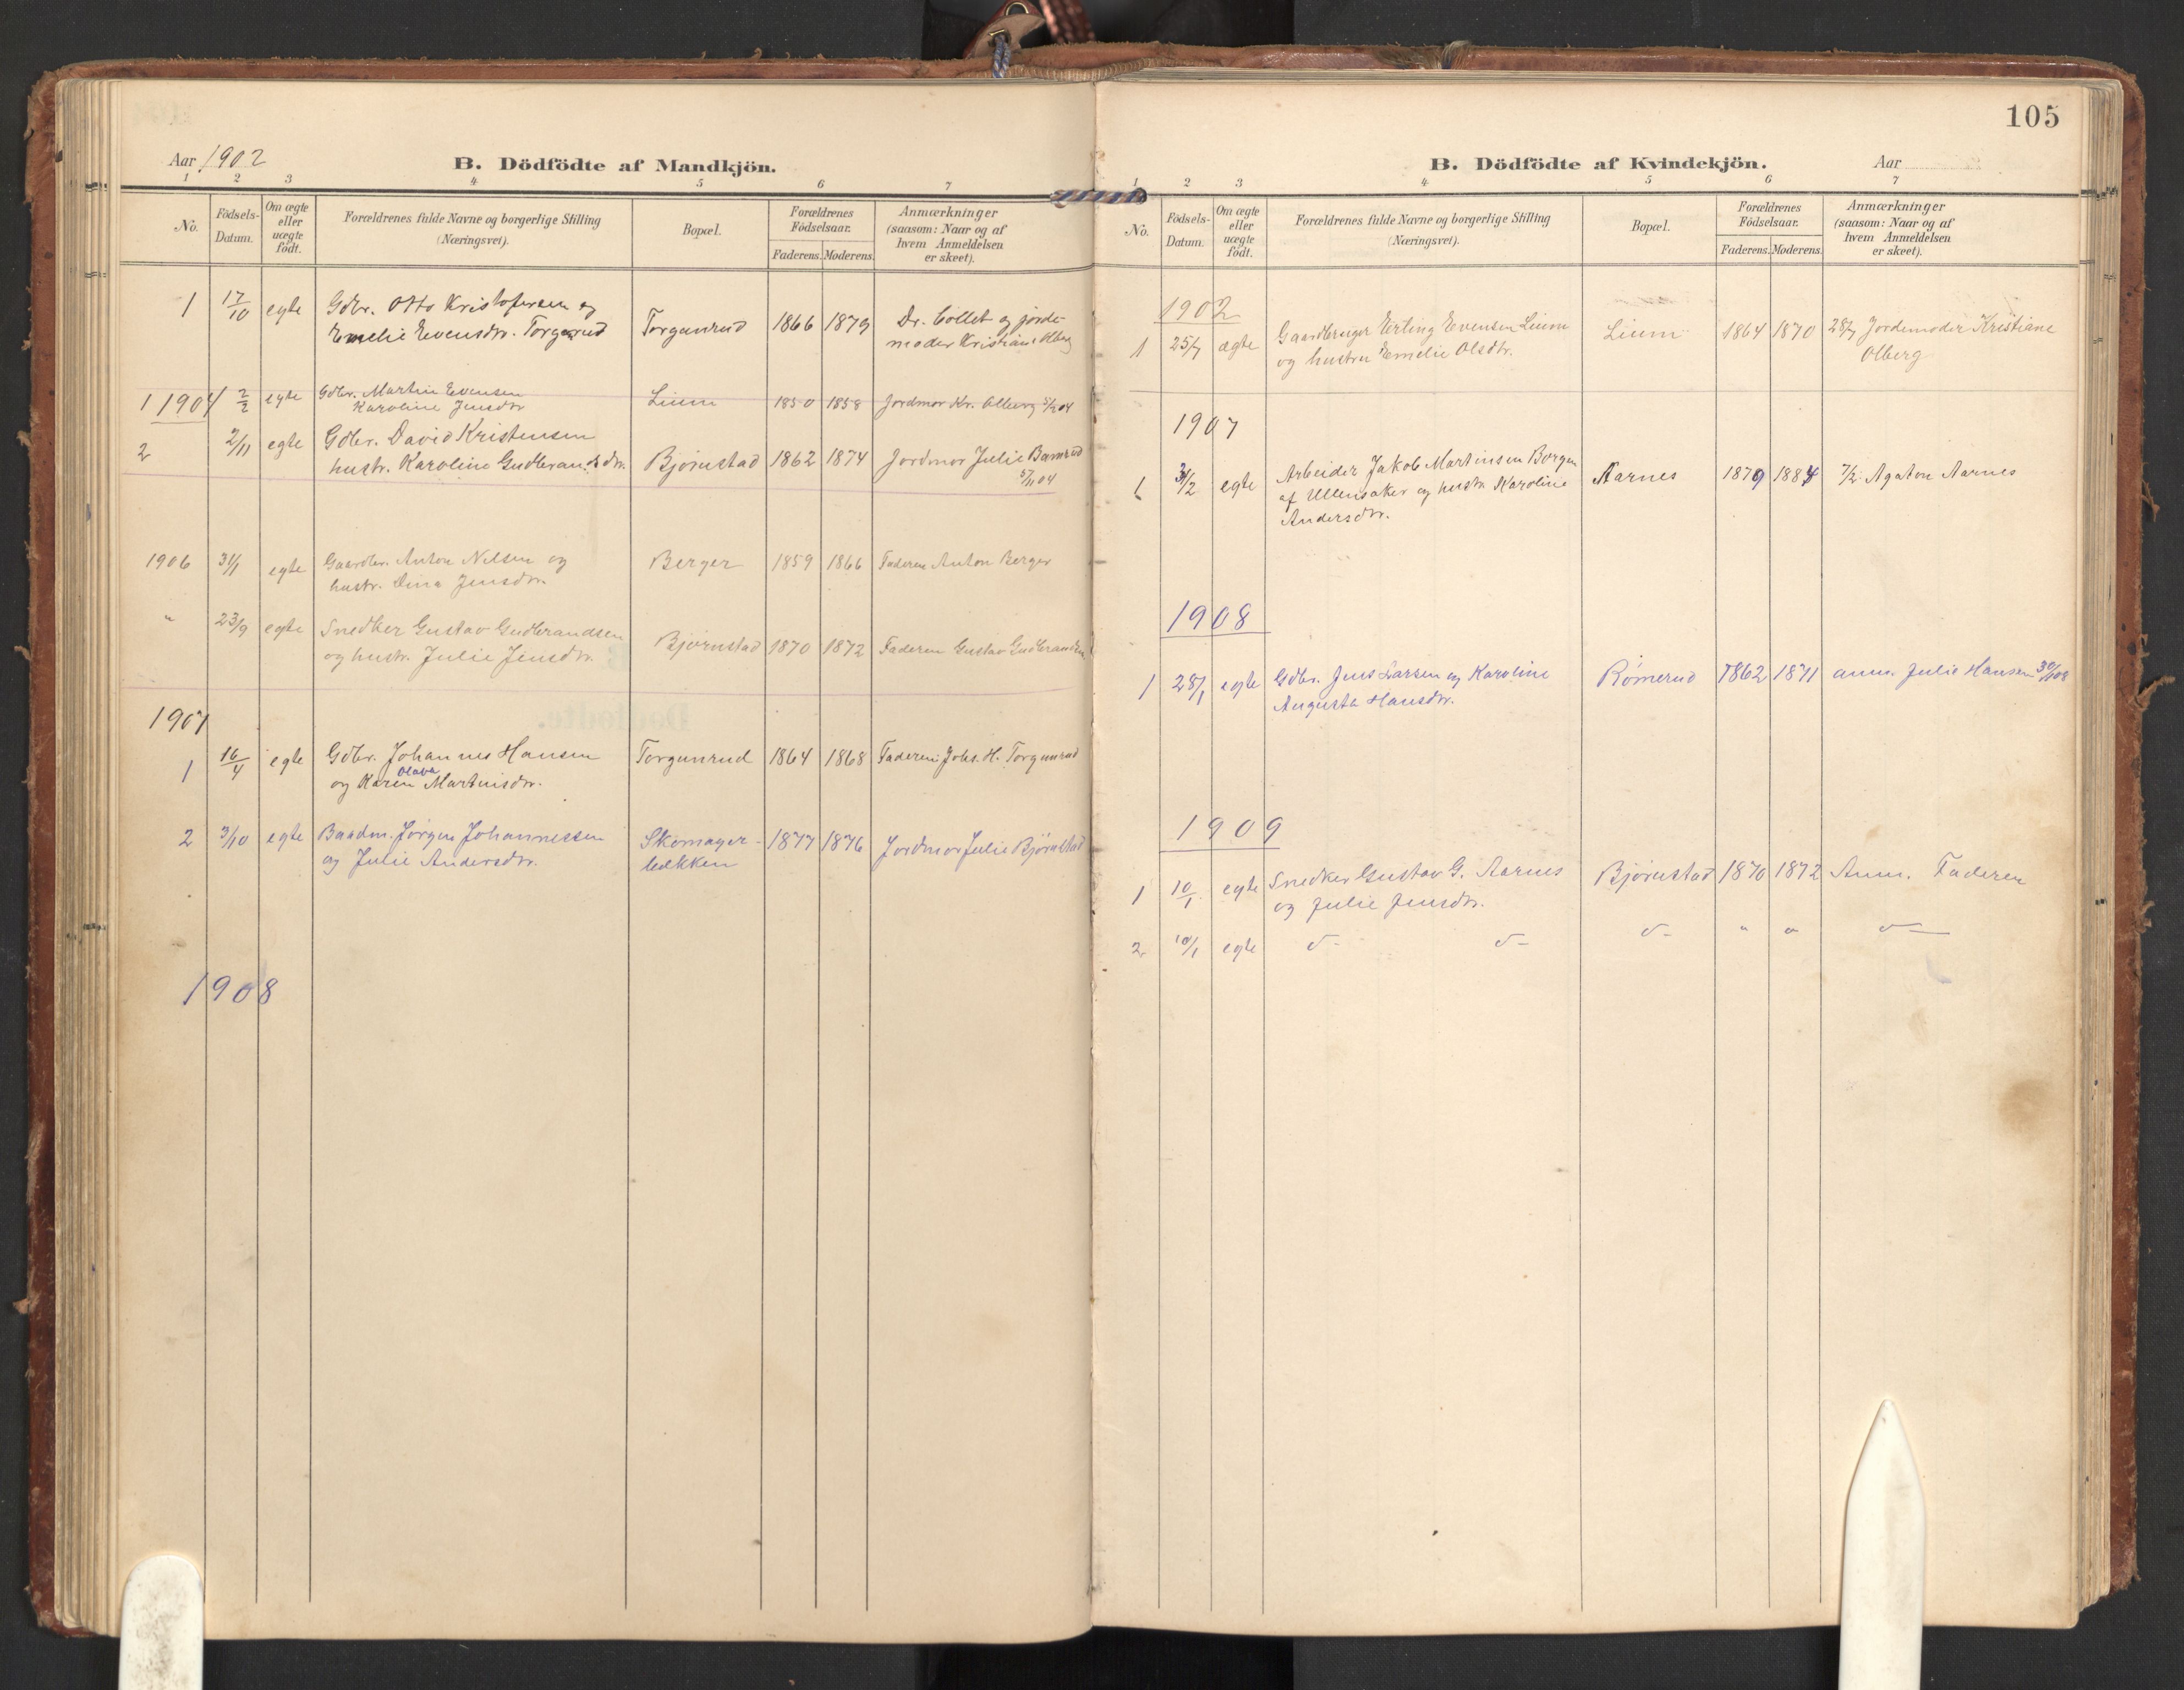 Aar 1902
B. Dödfödte af Mandkjön.
1 2 3 4 5 6 7
No.
Födsels-
Datum.
Om ægte
eller
uægte
födt.
Forældrenes fulde Navne og borgerlige Stilling
(Næringsvei).
Bopæl.
Forældrenes
Födselsaar.
Faderens. Moderens.
Anmærkninger
(saasom: Naar og af
hvem Anmeldelsen
er skeet).
1 17/10 egte Gdbr. Otto Kristofersen og Torgunrud 1866 1879 Dr. Collet og jorde-
Emelie Evensdtr. Torgunrud moder Kristiane Olberg
1 1904 2/2 egte Gdbr. Martin Evensen Lium 1850 1858 Jordmor Kr. Olberg 5/2 04
Karoline Jensdtr
2 2/11 egte Gdbr. David Kristensen
hustr. Karoline Gudbrandsdtr. Bjørnstad 1862 1874 Jordmor Julie
5/11 04
1906 31/1 egte Gaardbr. Anton Nilsen og Berger 1859 1866 Faderen Anton Berger
hustr. Dina Jensdtr.
" 23/9 egte Snedker Gustav Gudbrandsen Bjørnstad 1870 1872 Faderen Gustav Gudbrandsen
og hustr. Julie Jensdtr.
1907
1 16/4 egte Gdbr. Johannes Hansen Torgunrud 1864 1868 Faderen: Johs. H. Torgunrud
Olava
og Karen Martinisdtr.
2 3/10 egte Baadm. Jørgen Johannessen Skomager- 1877 1876 Jordmor Julie Bjørnstad
og Julie Andersdtr. bækken
1908
105
B. Dödfödte af Kvindekjön.
Aar
1 2 3 4 5 6 7
No.
Födsels-
Datum.
Om ægte
eller
uægte
födt.
Forældrenes fulde Navne og borgerlige Stilling
(Næringsvei).
Bopæl.
Forældrenes
Födselsaar.
Faderens. Moderens.
Anmærkninger
(saasom: Naar og af
hvem Anmeldelsen
er skeet).
1902
1 25/7 ægte Gaardbruger Erling Evensen Lium Lium 1864 1870 28/7 Jordemoder Kristiane
og hustru Emelie Olsdtr. Olberg
1907
1 3/2 egte Arbeider Jakob Martinsen Borgen Aarnes 1879 1884 7/2 Agaton Aarnes
af Ullensaker og hustr. Karoline
Andersdtr.
1908
1 28/1 egte Gdbr. Jens Larsen og Karoline Rømerud 1862 1871 anm. Julie Hansen 30/1 08
Augusta Hansdtr.
1909
1 10/1 egte Snedker Gustav G. Aarnes Bjørnstad 1870 1872 Anm. Faderen
og Julie Jensdtr.
2 10/1 egte d- d- d- " " d-